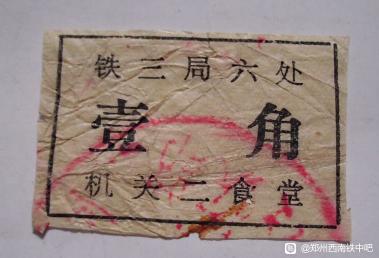 铁三局六处
壹角
机关二食堂
@郑州西南铁中吧